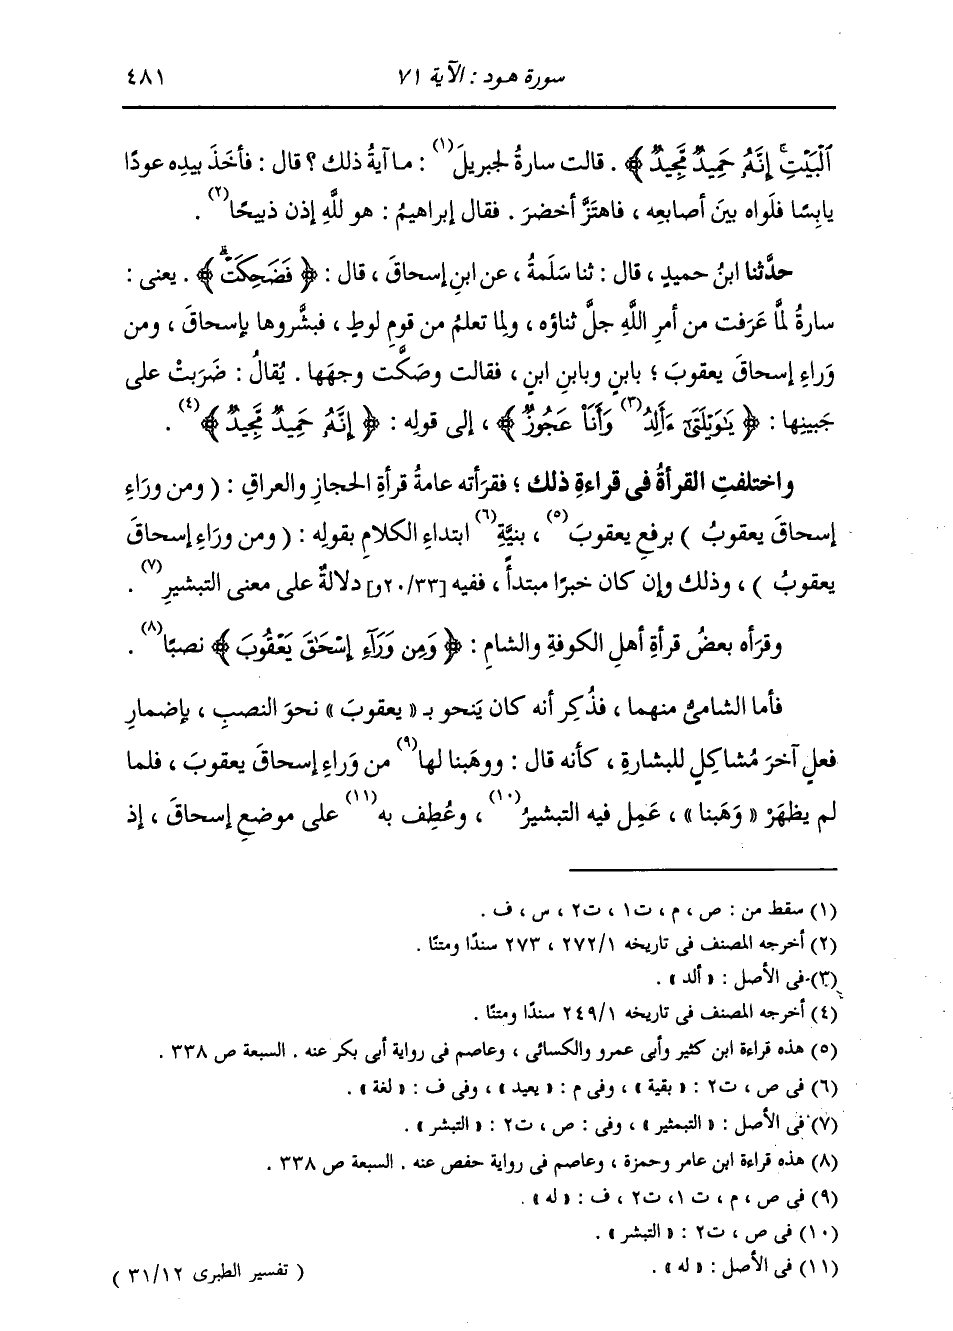 سورة هود : الآية ٧١
٤٨١
ٱلْبَيْتِۚ إِنَّهُۥ حَمِيدٌ مَّجِيدٌ ﴾ . قالت سارةُ لجبريلَ(١) : ما آيةُ ذلك ؟ قال : فأخَذ بيدِه عودًا
يابِسًا فلَواه بينَ أصابعِه ، فاهتَزَّ أخضرَ . فقال إبراهيمُ : هو للَّهِ إذن ذبيحًا(٢) .
حدَّثنا ابنُ حميدٍ ، قال : ثنا سَلَمةُ ، عن ابنِ إسحاقَ ، قال : ﴿ فَضَحِكَتْ ﴾ . يعنى :
سارةُ لمَّا عَرَفت من أمرِ اللَّهِ جلَّ ثناؤه ، ولِما تعلمُ من قومِ لوطٍ ، فبشَّروها بإسحاقَ ، ومن
وَراءِ إسحاقَ يعقوبَ ؛ بابنٍ وبابنِ ابنٍ ، فقالت وصَكَّت وجهَها . يُقالُ : ضَرَبتْ على
جَبينِها : ﴿ يَٰوَيْلَتَىٰٓ ءَأَلِدُ(٣) وَأَنَا۠ عَجُوزٌ ﴾ ، إلى قولِه : ﴿ إِنَّهُۥ حَمِيدٌ مَّجِيدٌ ﴾(٤) .
واختلفتِ القرأةُ فى قراءةِ ذلك ؛ فقرَأته عامةُ قرأةِ الحجازِ والعراقِ : ( ومن ورَاءِ
إسحاقَ يعقوبُ ) برفعِ يعقوبَ(٥) ، بنيَّةِ(٦) ابتداءِ الكلامِ بقولِه : ( ومن ورَاءِ إسحاقَ
يعقوبُ ) ، وذلك وإن كان خبرًا مبتدأً ، ففيه [٢٠/٣٣و] دلالةٌ على معنى التبشيرِ(٧) .
وقرَأه بعضُ قرأةِ أهلِ الكوفةِ والشامِ : ﴿ وَمِن وَرَآءِ إِسْحَٰقَ يَعْقُوبَ ﴾ نصبًا(٨) .
فأما الشامىُّ منهما ، فذُكِر أنه كان يَنحو بـ « يعقوبَ » نحوَ النصبِ ، بإضمارِ
فعلٍ آخرَ مُشاكِلٍ للبشارةِ ، كأنه قال : ووهَبنا لها(٩) من وَراءِ إسحاقَ يعقوبَ ، فلما
لم يظهَرْ « وَهَبنا » ، عَمِل فيه التبشيرُ(١٠) ، وعُطِف به(١١) على موضعِ إسحاقَ ، إذ
(١) سقط من : ص ، م ، ت١ ، ت٢ ، س ، ف .
(٢) أخرجه المصنف فى تاريخه ٢٧٢/١ ، ٢٧٣ سندًا ومتنًا .
(٣) فى الأصل : « ألد » .
(٤) أخرجه المصنف فى تاريخه ٢٤٩/١ سندًا ومتنًا .
(٥) هذه قراءة ابن كثير وأبى عمرو والكسائى ، وعاصم فى رواية أبى بكر عنه . السبعة ص ٣٣٨ .
(٦) فى ص ، ت٢ : « بقية » ، وفى م : « يعيد » ، وفى ف : « لغة » .
(٧) فى الأصل : « التبمثير » ، وفى : ص ، ت٢ : « التبشر » .
(٨) هذه قراءة ابن عامر وحمزة ، وعاصم فى رواية حفص عنه . السبعة ص ٣٣٨ .
(٩) فى ص ، م ، ت ١، ت٢ ، ف : « له » .
(١٠) فى ص ، ت٢ : « التبشر » .
(١١) فى الأصل : « له » .
( تفسير الطبرى ٣١/١٢ )